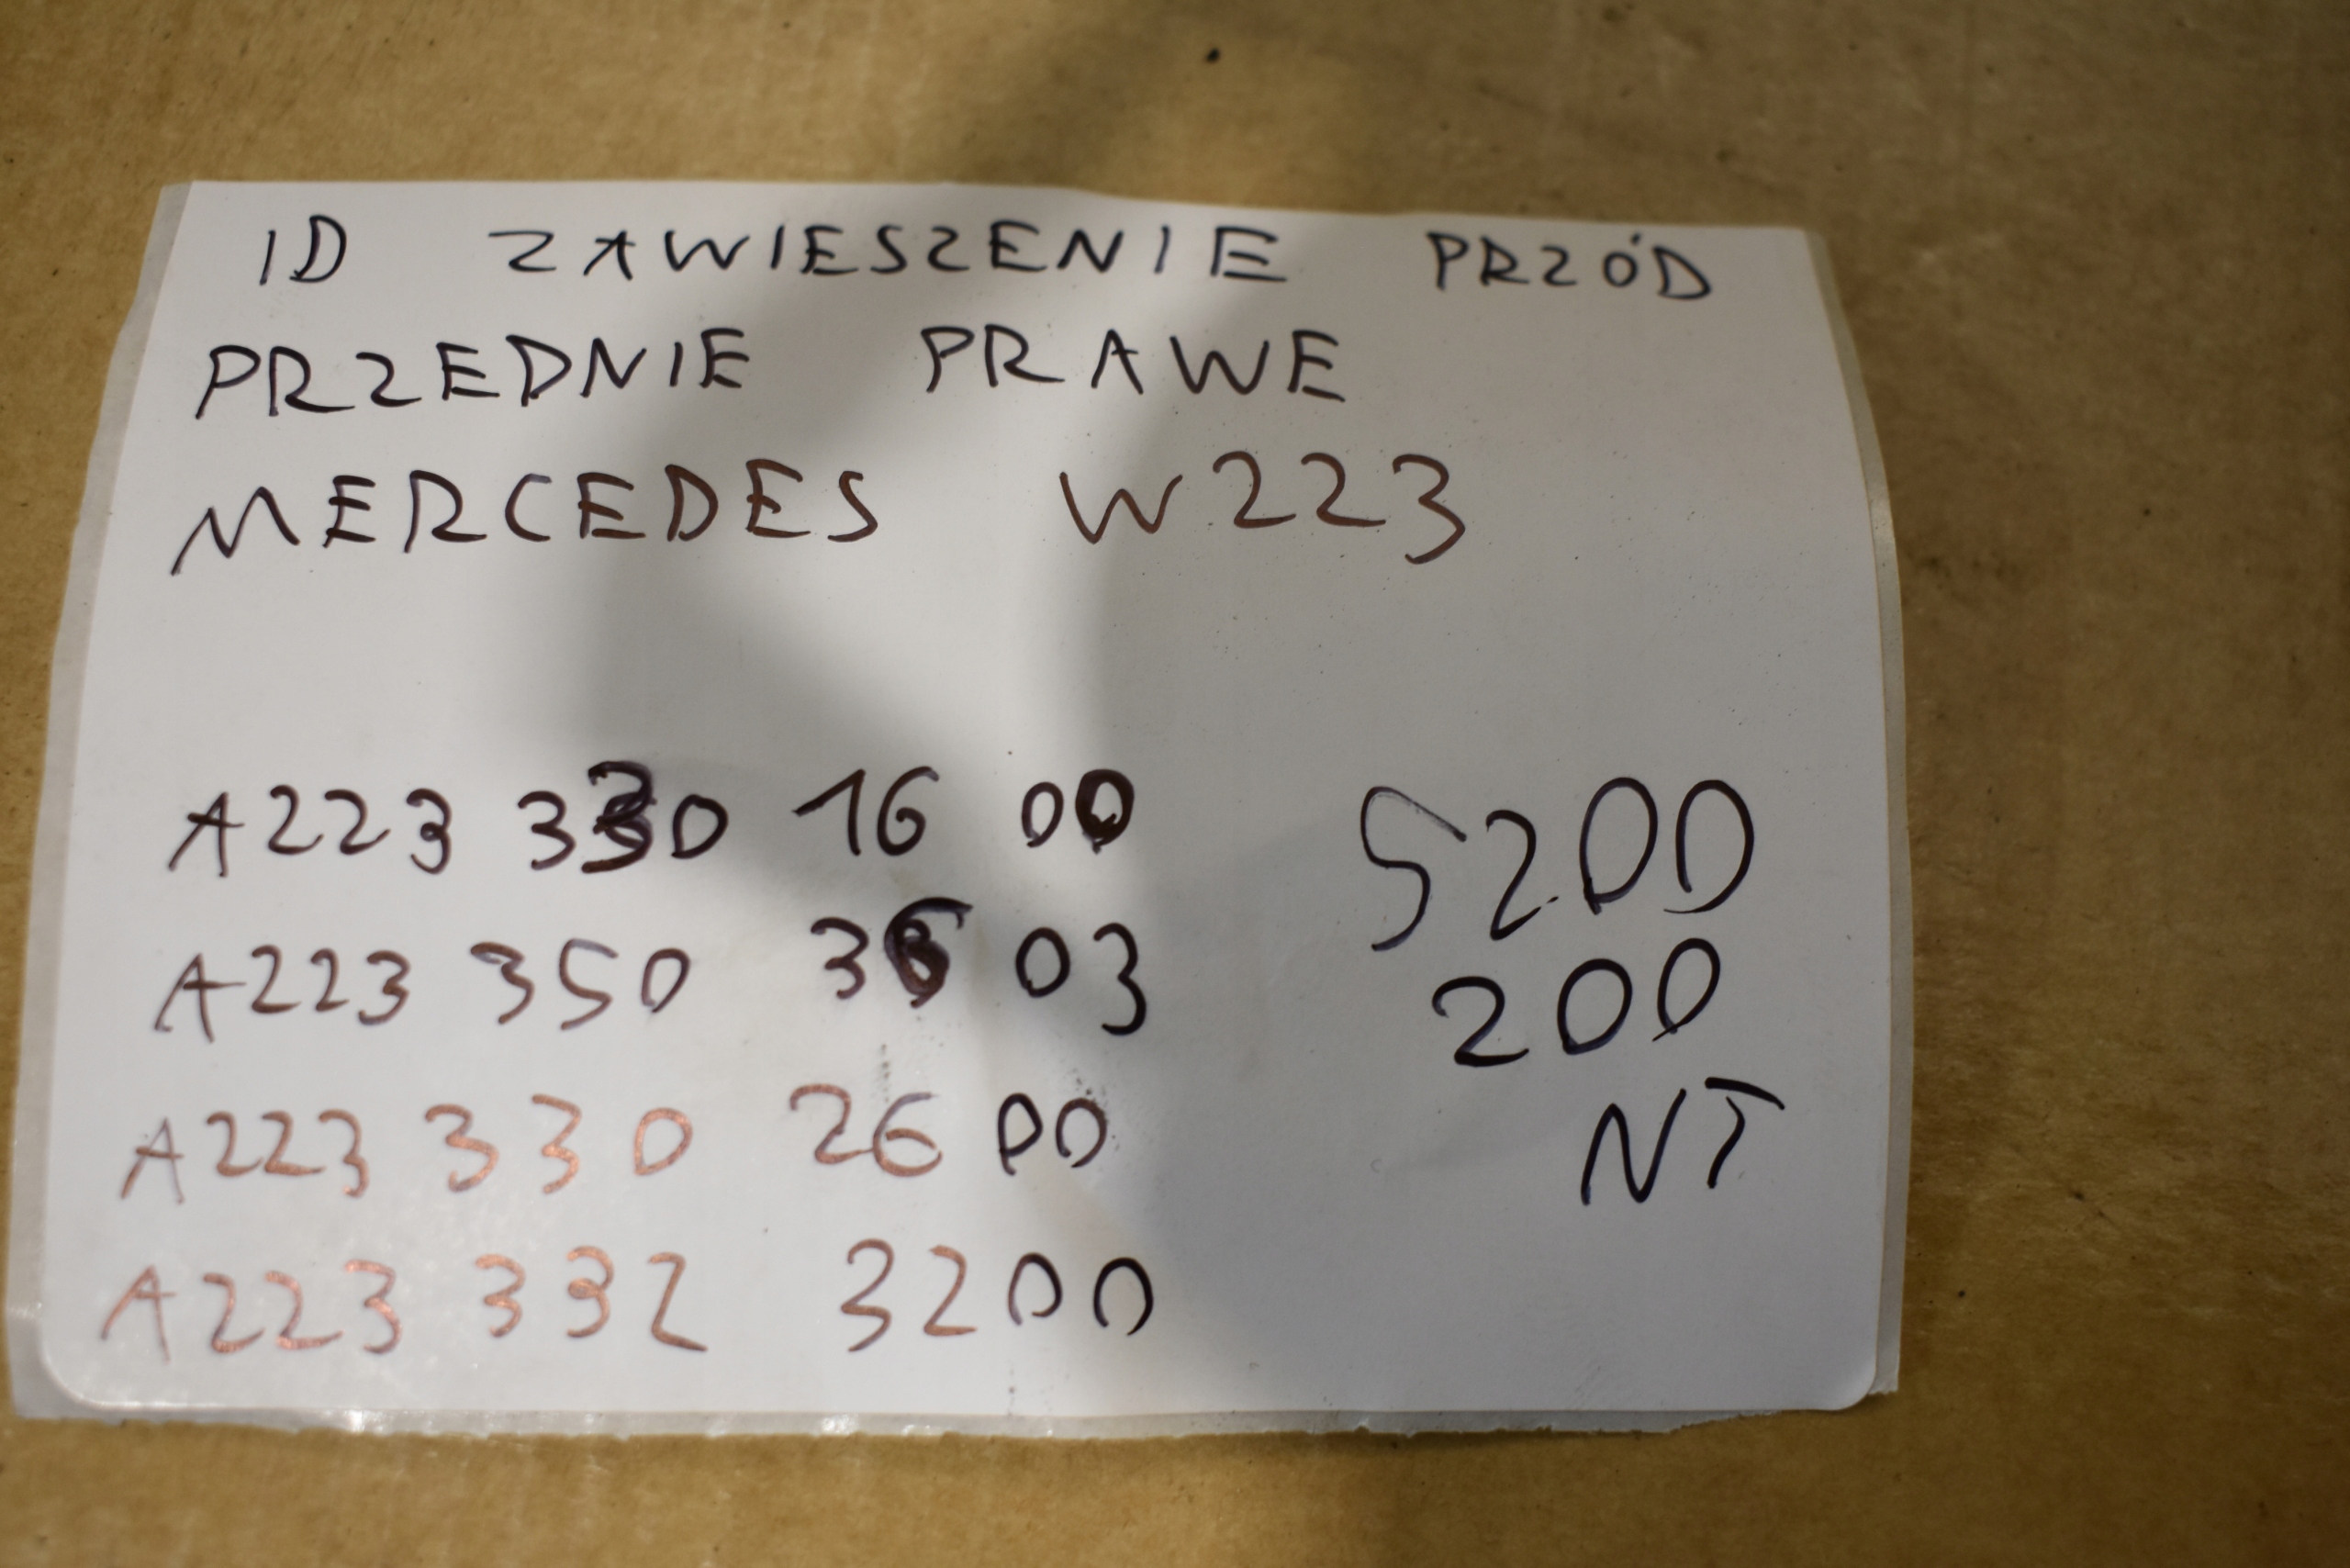 ID ZAWIESZENIE PRZÓD
PRZEDNIE PRAWE
MERCEDES W223
A223 330 16 00
A223 350 36 03
A223 330 26 00
A223 332 3200
5200
200
NT